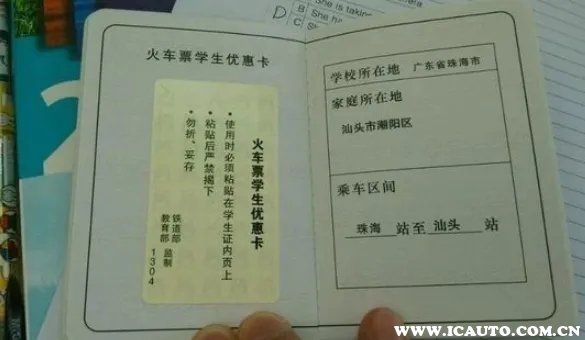 D
B
She is taking
C
She ha
火车票学生优惠卡
火车票学生优惠卡
• 使用时必须粘贴在学生证内页上
• 粘贴后严禁揭下
• 勿折、妥存
铁道部
教育部 监制
1304
学校所在地 广东省珠海市
家庭所在地
汕头市潮阳区
乘车区间
珠海 站至 汕头 站
www.icauto.com.cn